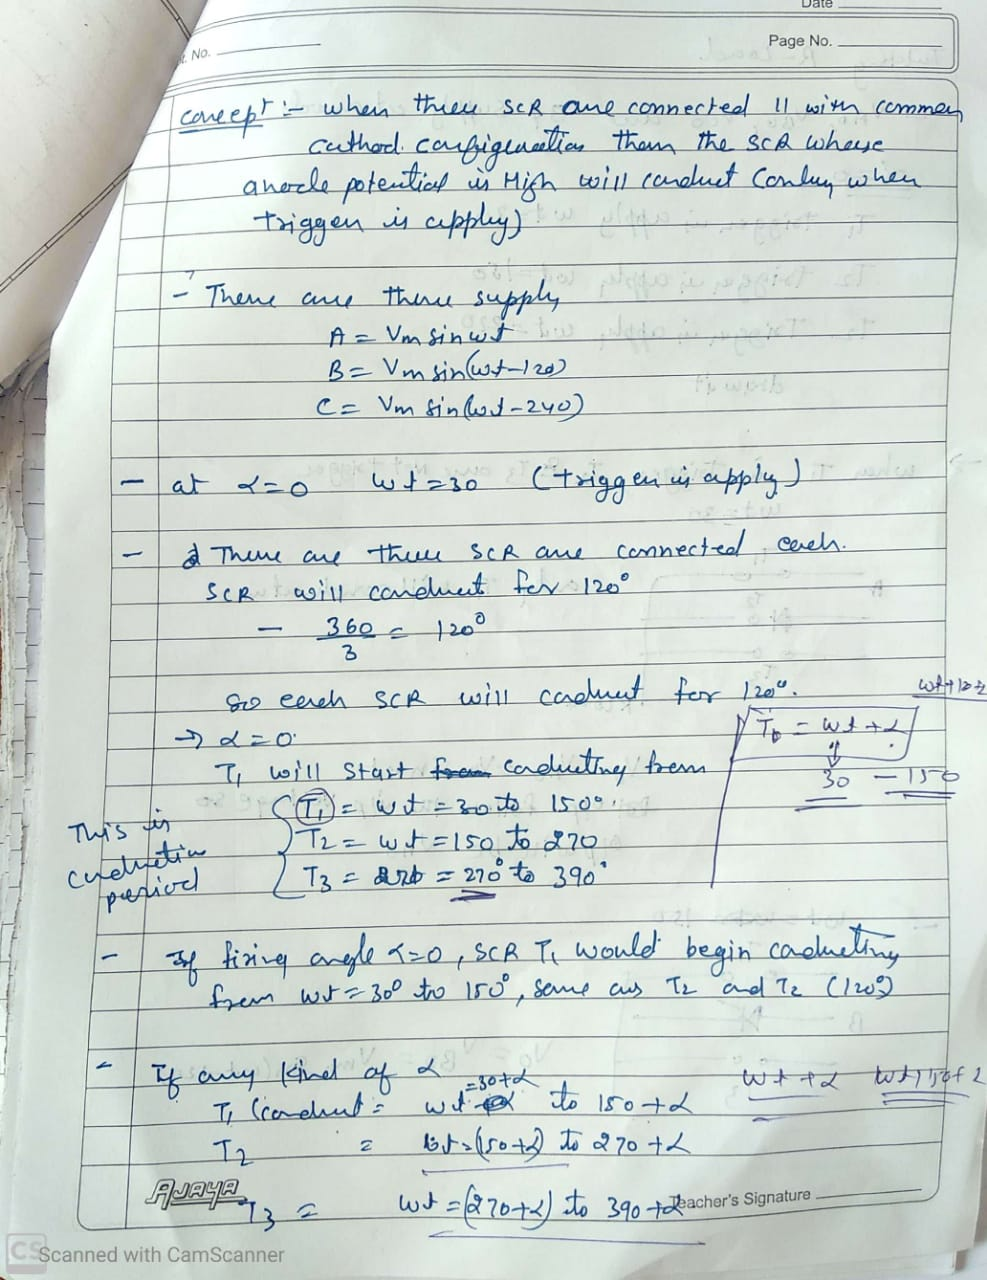 Date
Page No.
t. No.
concept :- when three SCR are connected 11 with common
cathod. configeration them the SCR whose
anode potential is High will conduct Conluy when
triggen is apply)
- There are three supply
A = Vm sinwt
B = Vm sin(wt-120)
C = Vm sin(wt-240)
- at α=0 wt=30 (triggen is apply)
- There are three SCR are connected each.
SCR will conduct for 120°
- 360/3 = 120°
so each SCR will coduct for 120°.
→ α=0
T1 will start conducting from
T1 = wt = 30 to 150°
T2 = wt = 150 to 270
T3 = = 270° to 390°
This is
conduction
period
= wt + α
30 - 150
- If firing angle α=0, SCR T1 would begin conducting
from wt = 30° to 150°, same as T2 and T2 (120°)
- If any kind of α
T1 (conduct = wt =30+α to 150+α
wt + α
T2 = wt=(150+α) to 270+α
AJAYA
T3 = wt = (270+α) to 390+α
Teacher's Signature
CS Scanned with CamScanner